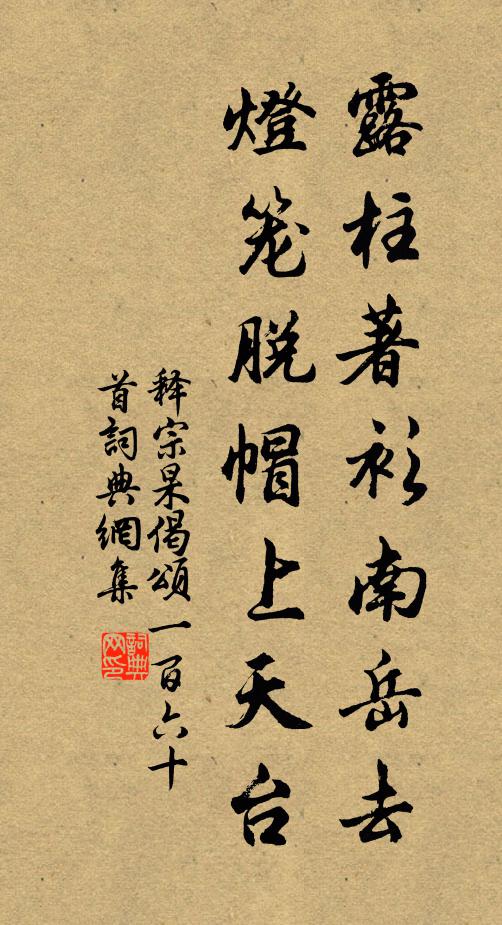 露柱著衫南岳去
燈笼脫帽上天台
释宗杲偈頌一百六十
首詞典網集
詞典
网印